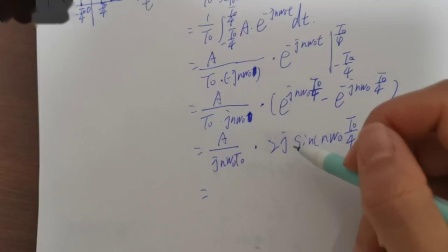 = 1/T₀ ∫_{-T₀/4}^{T₀/4} A·e^{-jnω₀t} dt.
= A/(T₀·(-jnω₀)) · e^{-jnω₀t} |_{-T₀/4}^{T₀/4}
= A/(T₀·jnω₀) · (e^{jnω₀T₀/4} - e^{-jnω₀T₀/4})
= A/(jnω₀T₀) · 2j sin(nω₀ T₀/4
=